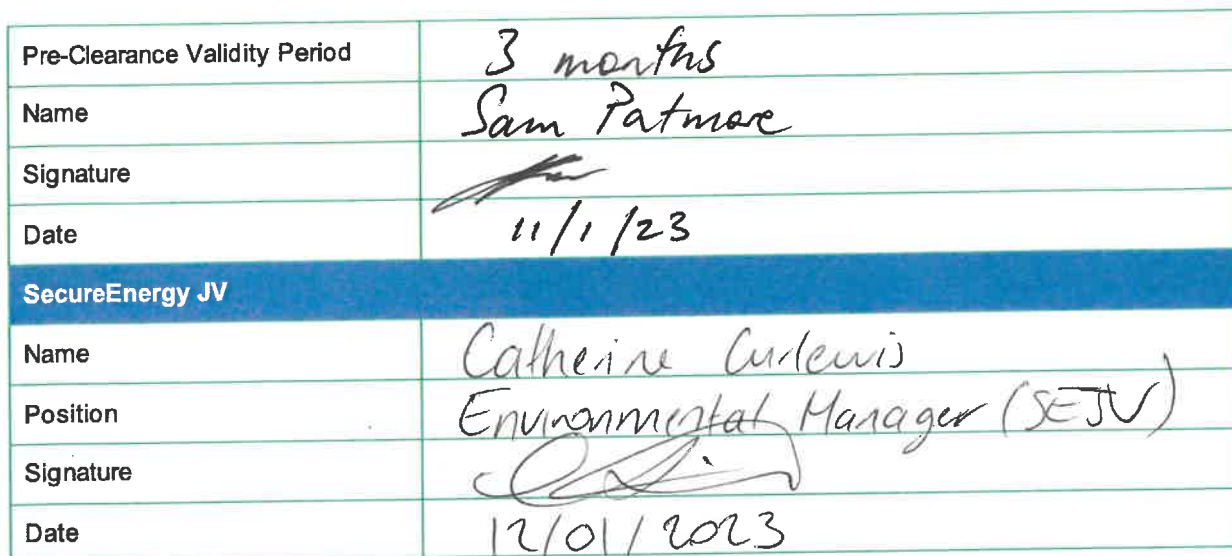 Pre-Clearance Validity Period 3 months
Name Sam Patmore
Signature
Date 11/1/23
SecureEnergy JV
Name Catherine Curlewis
Position Environmental Manager (SEJV)
Signature
Date 12/01/2023